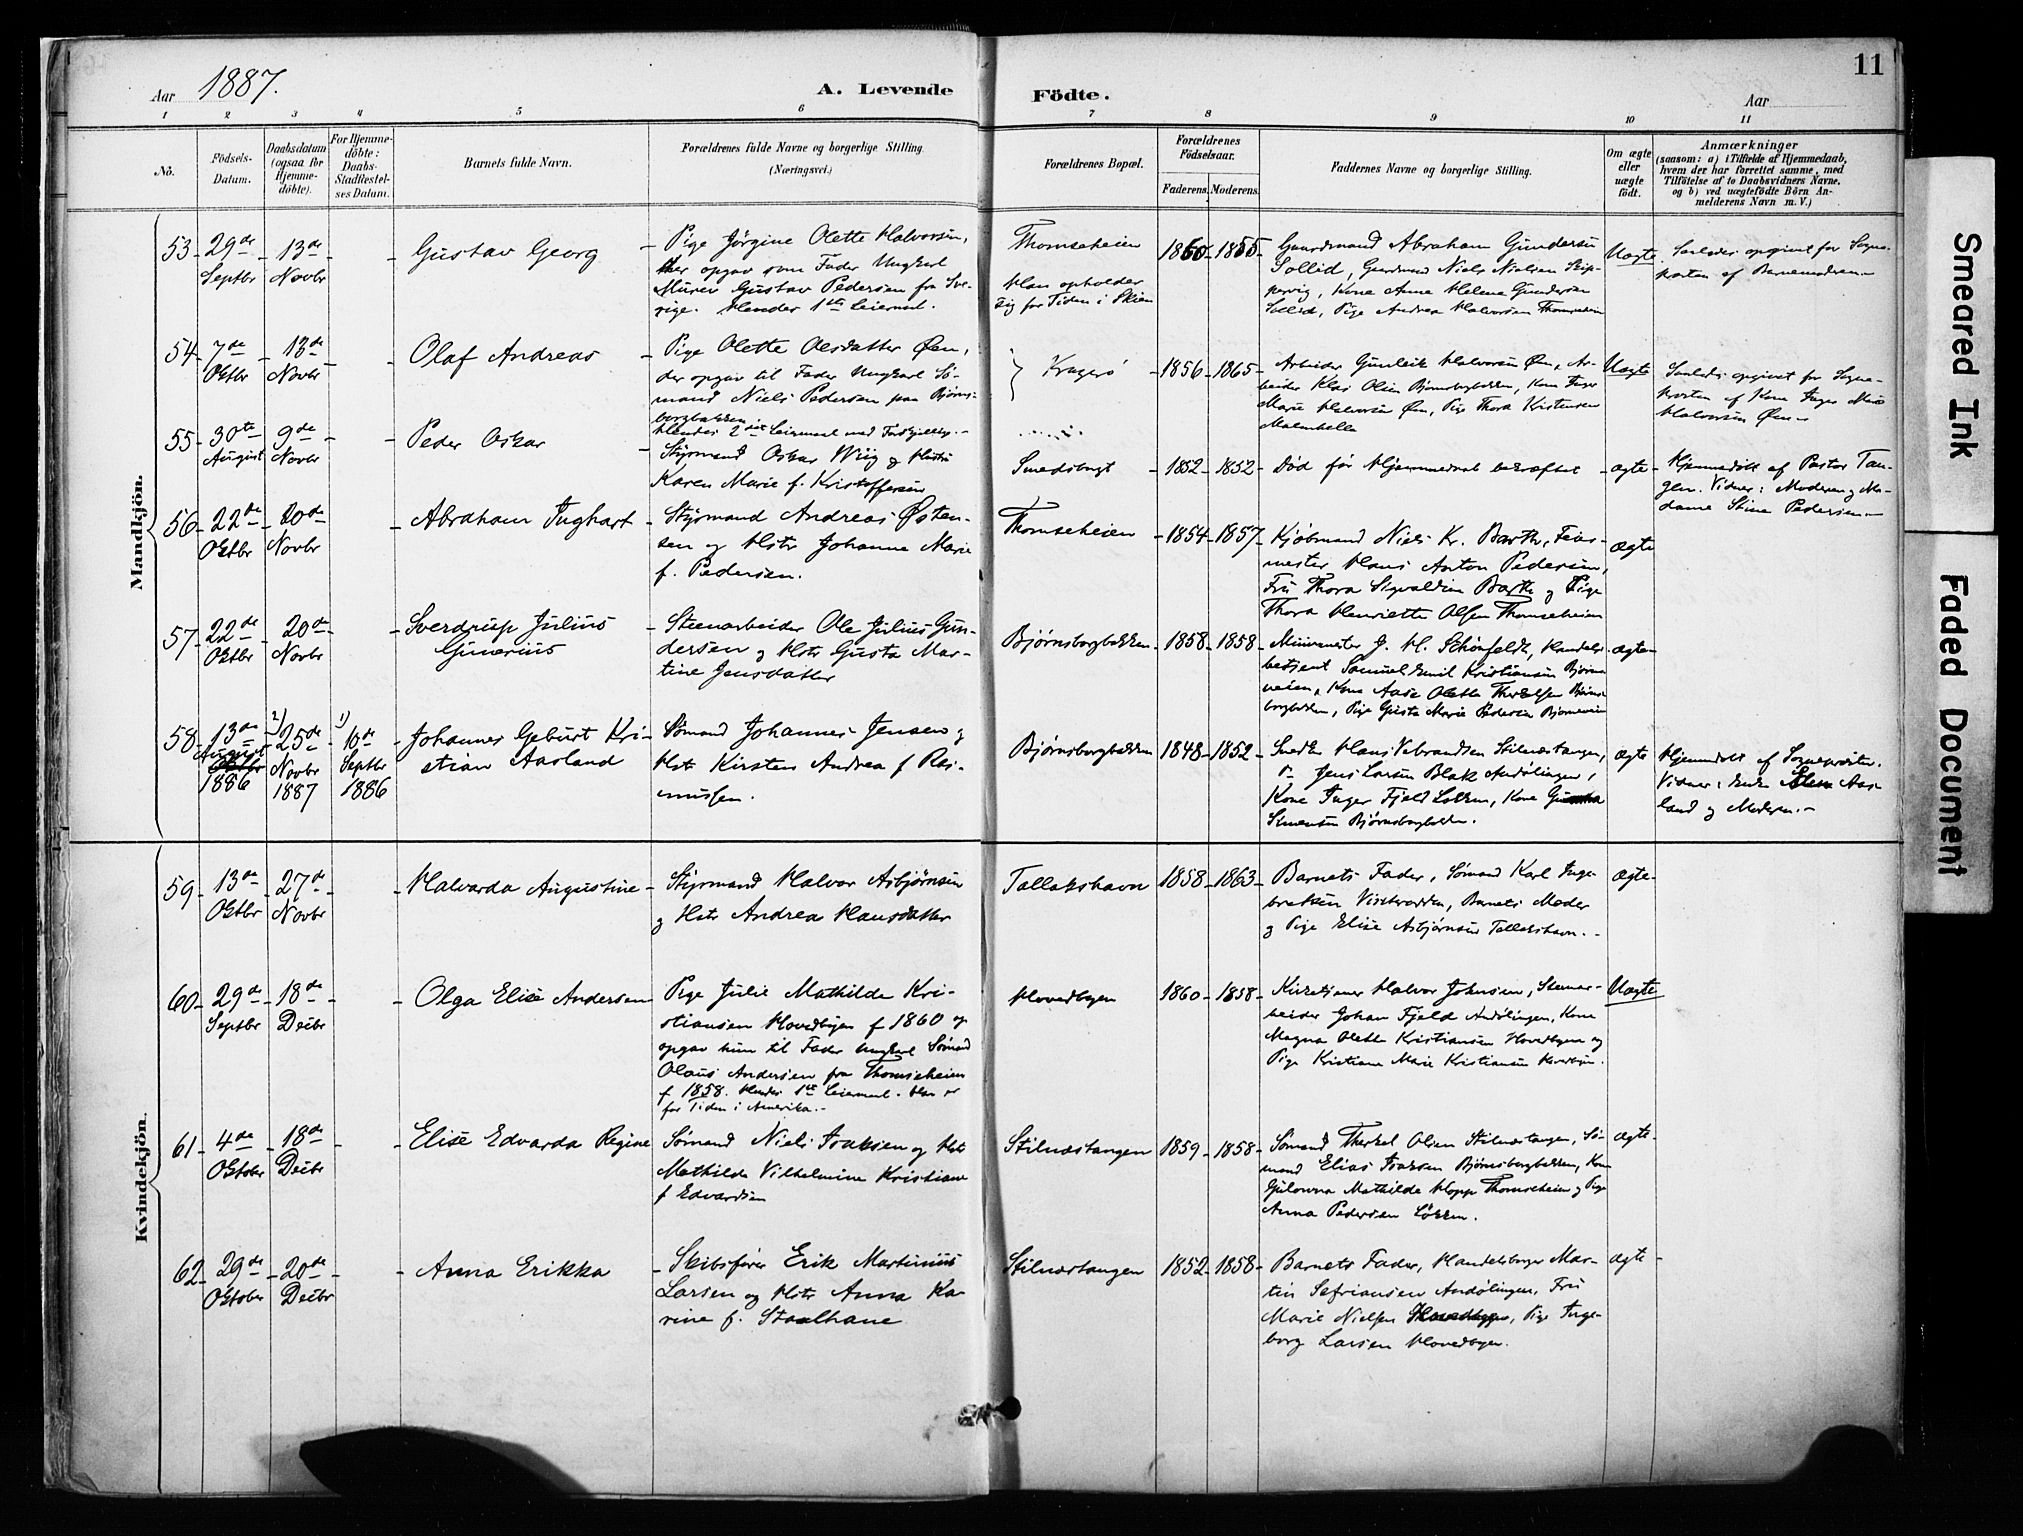 Aar 1887.
A. Levende Födte.
Aar
11
1 2 3 4 5 6 7 8 9 10 11
No.
Födsels-
Datum.
Daabsdatum
(ogsaa for
Hjemme-
döbte).
For Hjemme-
döbte:
Daabs-
Stadfæstel-
ses Datum.
Barnets fulde Navn.
Forældrenes fulde Navne og borgerlige Stilling
(Næringsvei.)
Forældrenes Bopæl.
Forældrenes
Födselsaar.
Faderens. Moderens.
Faddernes Navne og borgerlige Stilling.
Om ægte
eller
uægte
födt.
Anmærkninger
(saasom: a) i Tilfælde af Hjemmedaab,
hvem der har forrettet samme, med
Tilföielse af to Daabsvidners Navne,
og b) ved uægtefödte Börn An-
melderens Navn m. V.)
Mandkjön.
53 29de Septbr 13de Novbr
Gustav Georg
Pige Jørgine Olette Halvorsen,
opgav som Fader Ungkarl
Murer Gustav Pedersen fra Sve-
rige. Hendes 1ste Leiermaal.
Thomseheien
Han opholder
sig for Tiden i Skien
1860 1855
Gaardmand Abraham Gundersen
Sollid, Gaardmand Niels Nielsen Skip-
pervig, Kone Anne Helene Gundersen
Sollid, Pige Andrea Halvorsen Thomseheien
Uægte
Saaledes opgivet for Sogne-
præsten af Barnemoderen
54 7de Oktbr 13de Novbr
Olaf Andreas
Pige Olette Olsdatter Øen,
der opgav til Fader Ungkarl Sø-
mand Niels Pedersen paa Bjørns-
borgbakken
Hendes 2det Leiermaal med Forskjellig.
Kragerø
1856 1865
Arbeider Gunleik Halvorsen Øen, Ar-
beider Klas Olsen Bjørnsborgbakken, Kone Inger
Marie Halvorsen Øen, Pige Thora Kristensen
Malmhella
Uægte
Saaledes opgivet for Sogne-
præsten af Kone Inger Marie
Halvorsen Øen
55 30te August 9de Novbr
Peder Oskar
Styrmand Oskar Wiig og Hustru
Karen Marie f. Kristoffersen
Smedsbugt
1852 1852
Død før Hjemmedaab bekræftet
ægte
Hjemmedøbt af Pastor Tan-
gen. Vidner: Moderen og Ma-
dame Stine Pedersen
56 22de Oktbr 20de Novbr
Abraham Inghart
Styrmand Andreas Østen-
sen og Hstr Johanne Marie
f. Pedersen.
Thomseheien
1854 1857
Kjøbmand Niels K. Barth, Feier-
mester Hans Anton Pedersen,
Fru Thora Sigvaldine Barth og Pige
Thora Henriette Olsen Thomseheien
ægte
57 22de Oktbr 20de Novbr
Sverdrup Julius
Gunerius
Steenarbeider Ole Julius Gun-
dersen og Hstr Gusta Mar-
tine Jensdatter
Bjørnsborgbakken
1858 1858
Minemester J. H. Schönfeldt, Handels-
betjent Samuel Emil Kristiansen Bjørne-
veien, Kone Aase Olette Therkelsen Bjørns-
borgbakken, Pige Gusta Marie Pedersen Bjørneveien
ægte
58 13de August 1886 2) 25de Novbr 1887 1) 10de Septbr 1886
Johannes Geburt Kri-
stian Aasland
Sømand Johannes Jensen og
Hstr Kirsten Andrea f Ras-
mussen.
Bjørnsborgbakken
1848 1852
Snedker Hans Vebrandsen Stilnæstangen,
Jens Larsen Blak Andølingen,
Kone Inger Fjeld Løkken, Kone
Simensen Bjørnsborgbakken.
ægte
Hjemmedøbt af Sognepræsten.
Vidner: Enke Aas-
land og Moderen.
Kvindekjön.
59 13de Oktbr 27de Novbr
Halvarda Augustine
Styrmand Halvor Asbjørnsen
og Hstr Andrea Hansdatter
Tallakshavn
1858 1863
Barnets Fader, Sømand Karl Inge-
bretsen, Barnets Moder
og Pige Elise Asbjørnsen Tallakshavn.
ægte
60 29de Septbr 18de Decbr
Olga Elise Andersen
Pige Julie Mathilde Kri-
stiansen Hovedbyen f 1860 og
opgav hun til Fader Ungkarl Sømand
Olaus Andersen fra Thomseheien
f 1858. Hendes 1ste Leiermaal. Han er
for Tiden i Amerika.
Hovedbyen
1860 1858
Halvor Johnsen, Stenar-
beider Johan Fjeld Andølingen, Kone
Magna Olette Kristiansen Hovedbyen og
Pige Kristiane Marie Kristiansen Hovedbyen.
Uægte
61 4de Oktober 18de Decbr
Elise Edvarda Regine
Sømand Niels Isaksen og Hstr
Mathilde Vilhelmine Kristiane
f Edvardsen
Stilnæstangen
1859 1858
Sømand Therkel Olsen Stilnæstangen, Sø-
mand Elias Isaksen Bjørnsborgbakken, Kone
Gulowna Mathilde Hopp Thomseheien og Pige
Anna Pedersen Løkken.
ægte
62 29de Oktober 20de Decbr
Anna Erikka
Skibsfører Erik Martinius
Larsen og Hstr Anna Ka-
rine f. Staalhane
Stilnæstangen
1852 1858
Barnets Fader, Handelsborger Mar-
tin Sefriansen Andølingen, Fru
Marie Nielsen, Pige Inge-
borg Larsen Hovedbyen.
ægte
Smeared Ink
Faded Document